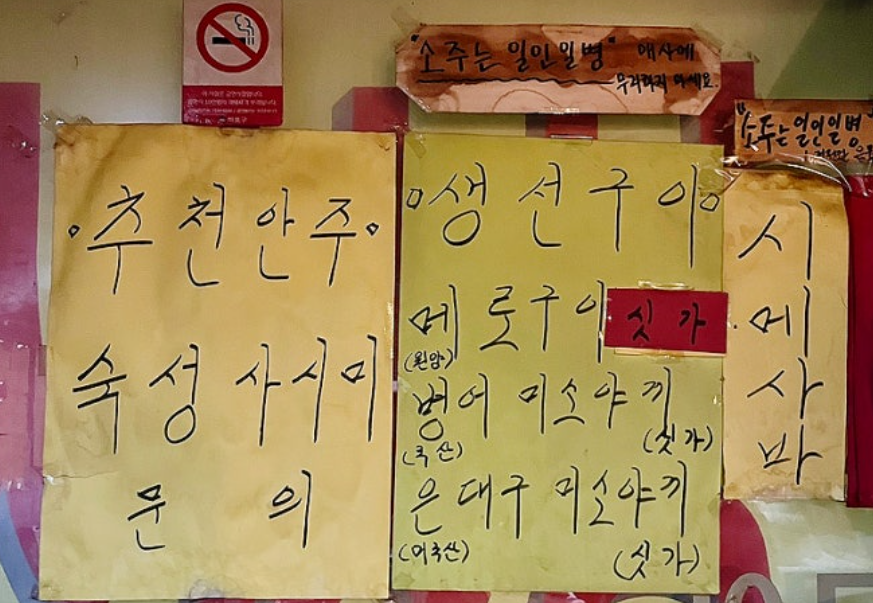 "소주는 일인일병" 애사에
무리하지 마세요.
"소주는 일인일병
추천안주
숙성 사시미
문의
생선구이
메로구이 싯가
(원양)
병어 미소야끼
(국산) (싯가)
은대구 미소야끼
(미국산) (싯가)
시
메
사
바